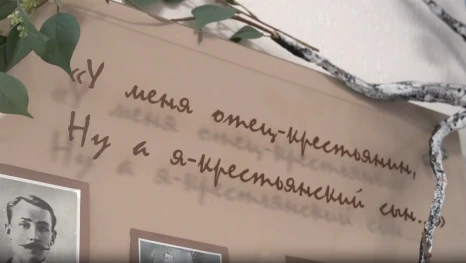 «У меня отец-крестьянин,
Ну а я-крестьянский сын...»